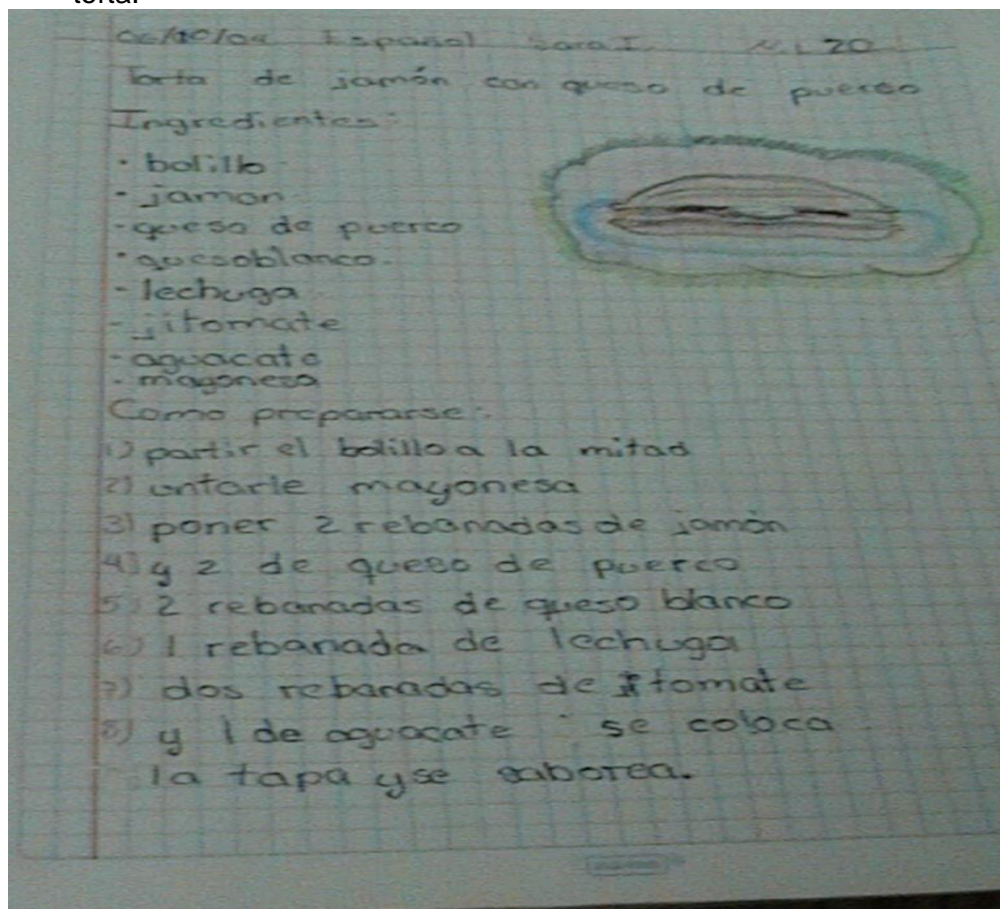 Español Sara I. N.L 20
Torta de jamón con queso de puerco
Ingredientes:
· bolillo
- jamon
- queso de puerco
· quesoblanco.
- lechuga
- jitomate
- aguacate
· mayonesa
Como prepararse:
1) partir el bolillo a la mitad
2) untarle mayonesa
3) poner 2 rebanadas de jamón
4) y 2 de queso de puerco
5) 2 rebanadas de queso blanco
6) 1 rebanada de lechuga
7) dos rebanadas de jitomate
8) y 1 de aguacate se coloca
la tapa y se saborea.